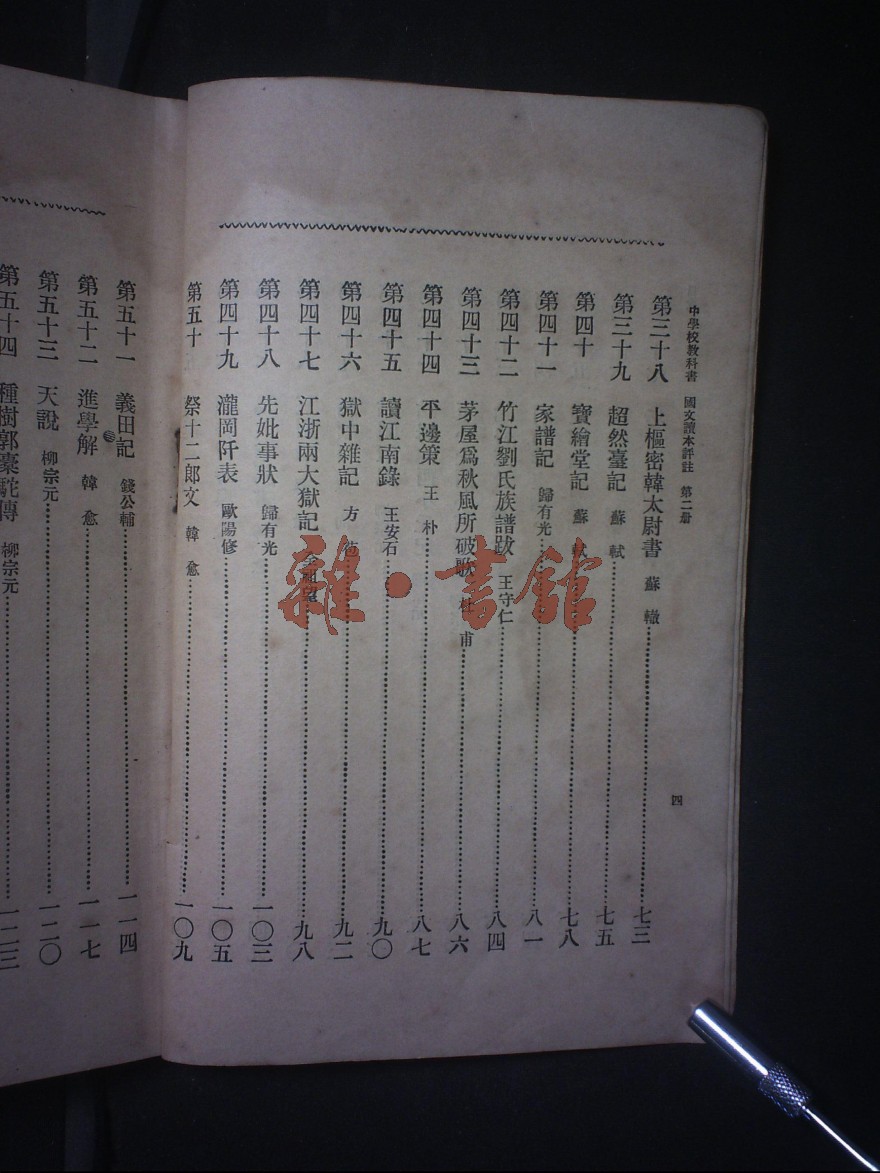 中學校教科書 國文讀本評註 第二册
四
第三十八 上樞密韓太尉書 蘇轍 七三
第三十九 超然臺記 蘇軾 七五
第四十 寶繪堂記 蘇軾 七八
第四十一 家譜記 歸有光 八一
第四十二 竹江劉氏族譜跋 王守仁 八四
第四十三 茅屋爲秋風所破歌 杜甫 八六
第四十四 平邊策 王朴 八七
第四十五 讀江南錄 王安石 九〇
第四十六 獄中雜記 方苞 九二
第四十七 江浙兩大獄記 全祖望 九八
第四十八 先妣事狀 歸有光 一〇三
第四十九 瀧岡阡表 歐陽修 一〇五
第五十 祭十二郎文 韓愈 一〇九
第五十一 義田記 錢公輔 一一四
第五十二 進學解 韓愈 一一七
第五十三 天說 柳宗元 一二〇
第五十四 種樹郭橐駝傳 柳宗元 一二三
雜·書館